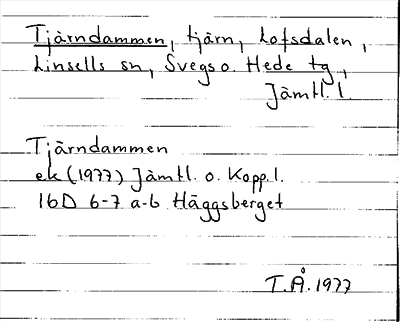 Tjärndammen, tjärn, Lofsdalen,
Linsells sn, Svegs o. Hede tg,
Jämtl. l.
Tjärndammen
ek (1977) Jämtl. o. Kopp. l.
16D 6-7 a-b Häggsberget
T.Å. 1977